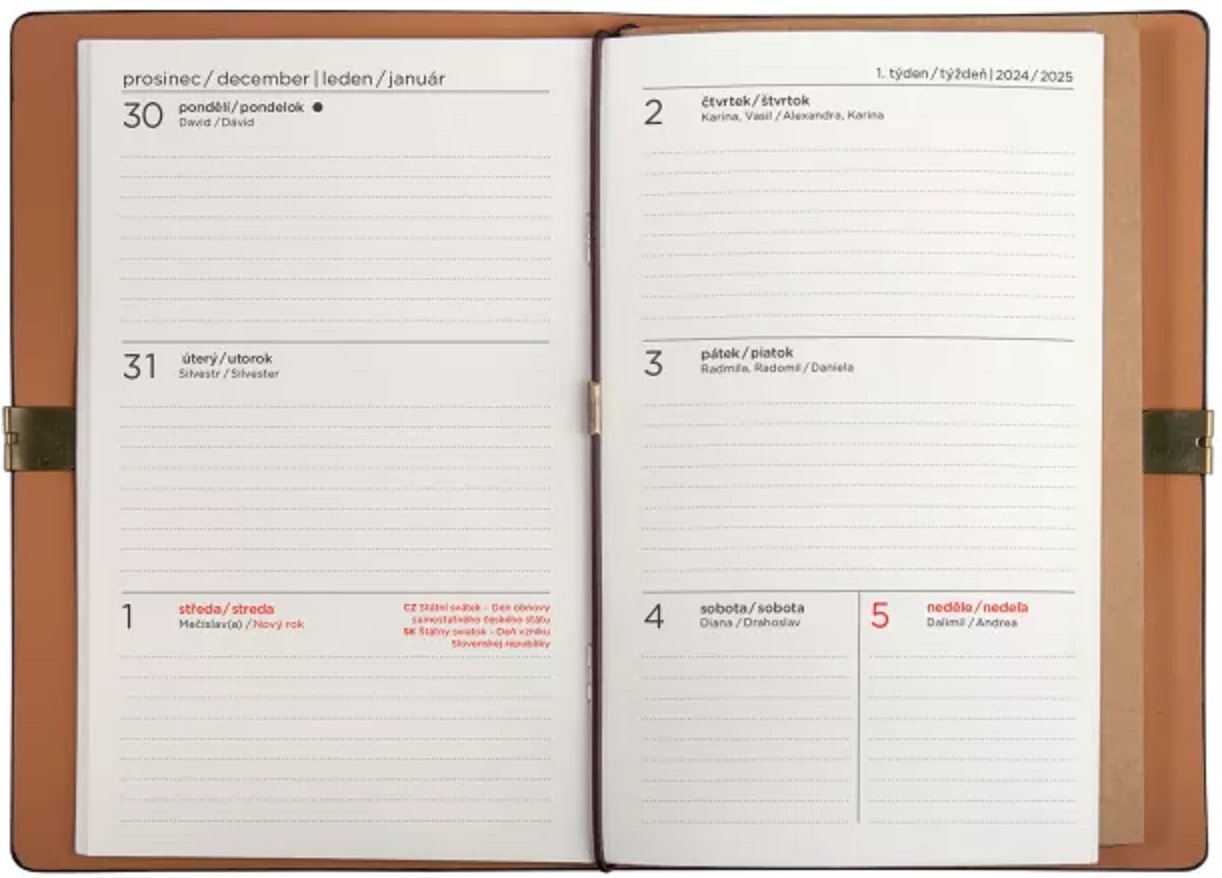 prosinec / december | leden / január
30 pondělí / pondelok ●
David / Dávid
31 úterý / utorok
Silvestr / Silvester
1 středa / streda
Mečislav(a) / Nový rok
CZ Státní svátek - Den obnovy
samostatného českého státu
SK Štátny sviatok - Deň vzniku
Slovenskej republiky
1. týden / týždeň | 2024 / 2025
2 čtvrtek / štvrtok
Karina, Vasil / Alexandra, Karina
3 pátek / piatok
Radmila, Radomil / Daniela
4 sobota / sobota
Diana / Drahoslav
5 neděle / nedeľa
Dalimil / Andrea